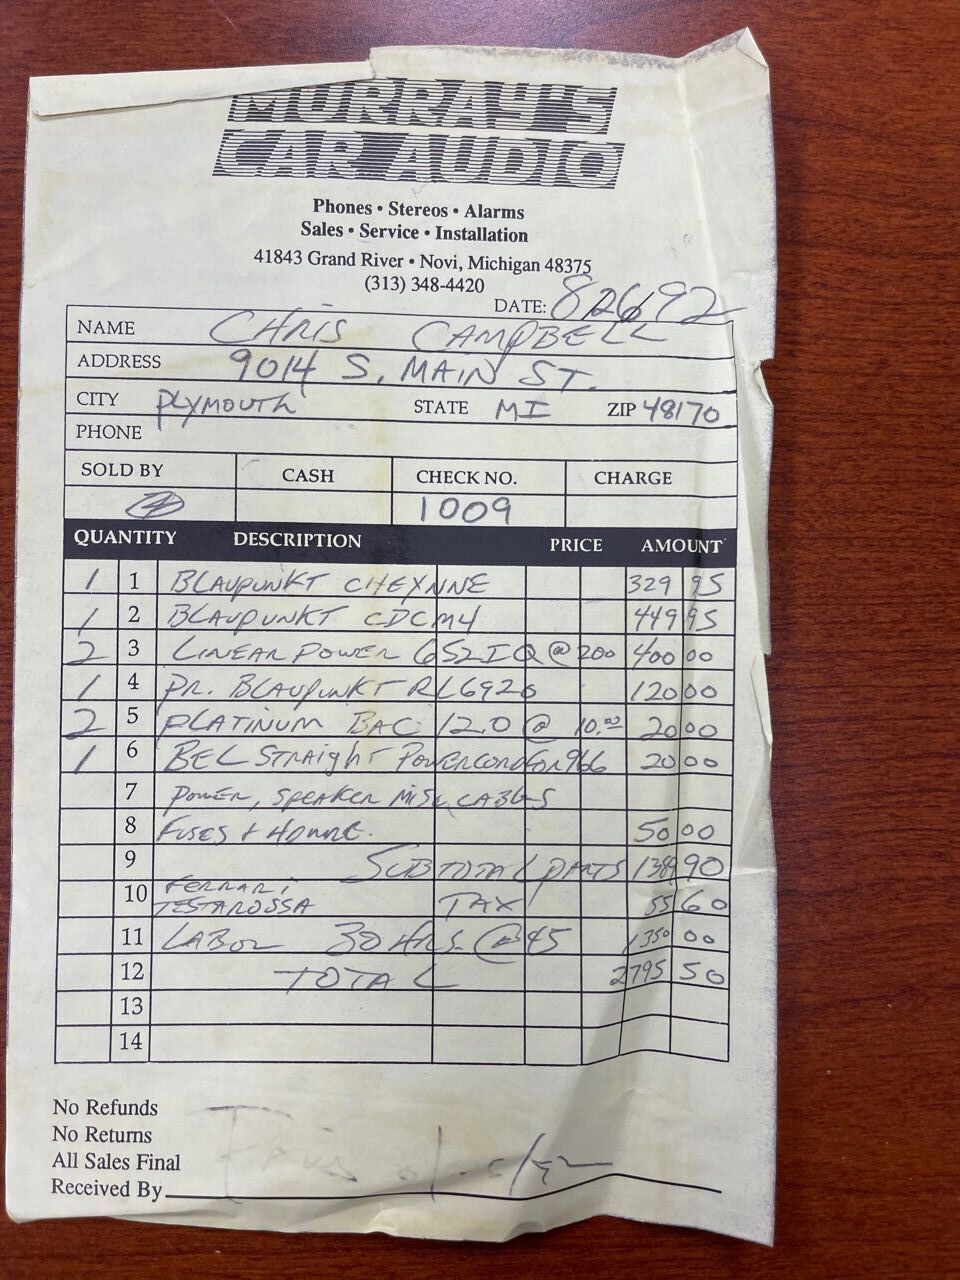 MURRAY'S
CAR AUDIO
Phones • Stereos • Alarms
Sales • Service • Installation
41843 Grand River • Novi, Michigan 48375
(313) 348-4420
DATE: 82692
NAME CHRIS CAMPBELL
ADDRESS 9014 S. MAIN ST.
CITY PLYMOUTH STATE MI ZIP 48170
PHONE
SOLD BY CASH CHECK NO. CHARGE
1009
QUANTITY DESCRIPTION PRICE AMOUNT
1 1 BLAUPUNKT CHEYNNE 329 95
1 2 BLAUPUNKT CDCM4 449 95
2 3 LINEAR POWER 652IQ @ 200 400 00
1 4 PR. BLAUPUNKT RL6920 120 00
2 5 PLATINUM BAC 12.0 @ 10.00 20 00
1 6 BEL STRAIGHT POWERCORD FOR 966 20 00
7 POWER, SPEAKER MISC CABLES
8 FUSES + 50 00
9 SUBTOTAL PARTS 1389 90
10 FERRARI
TESTAROSSA TAX 55 60
11 LABOR 30 HRS. @ 45 1350 00
12 TOTAL 2795 50
13
14
No Refunds
No Returns
All Sales Final
Received By